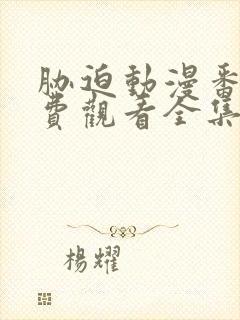 胁迫動漫番
費觀看全集
楊耀